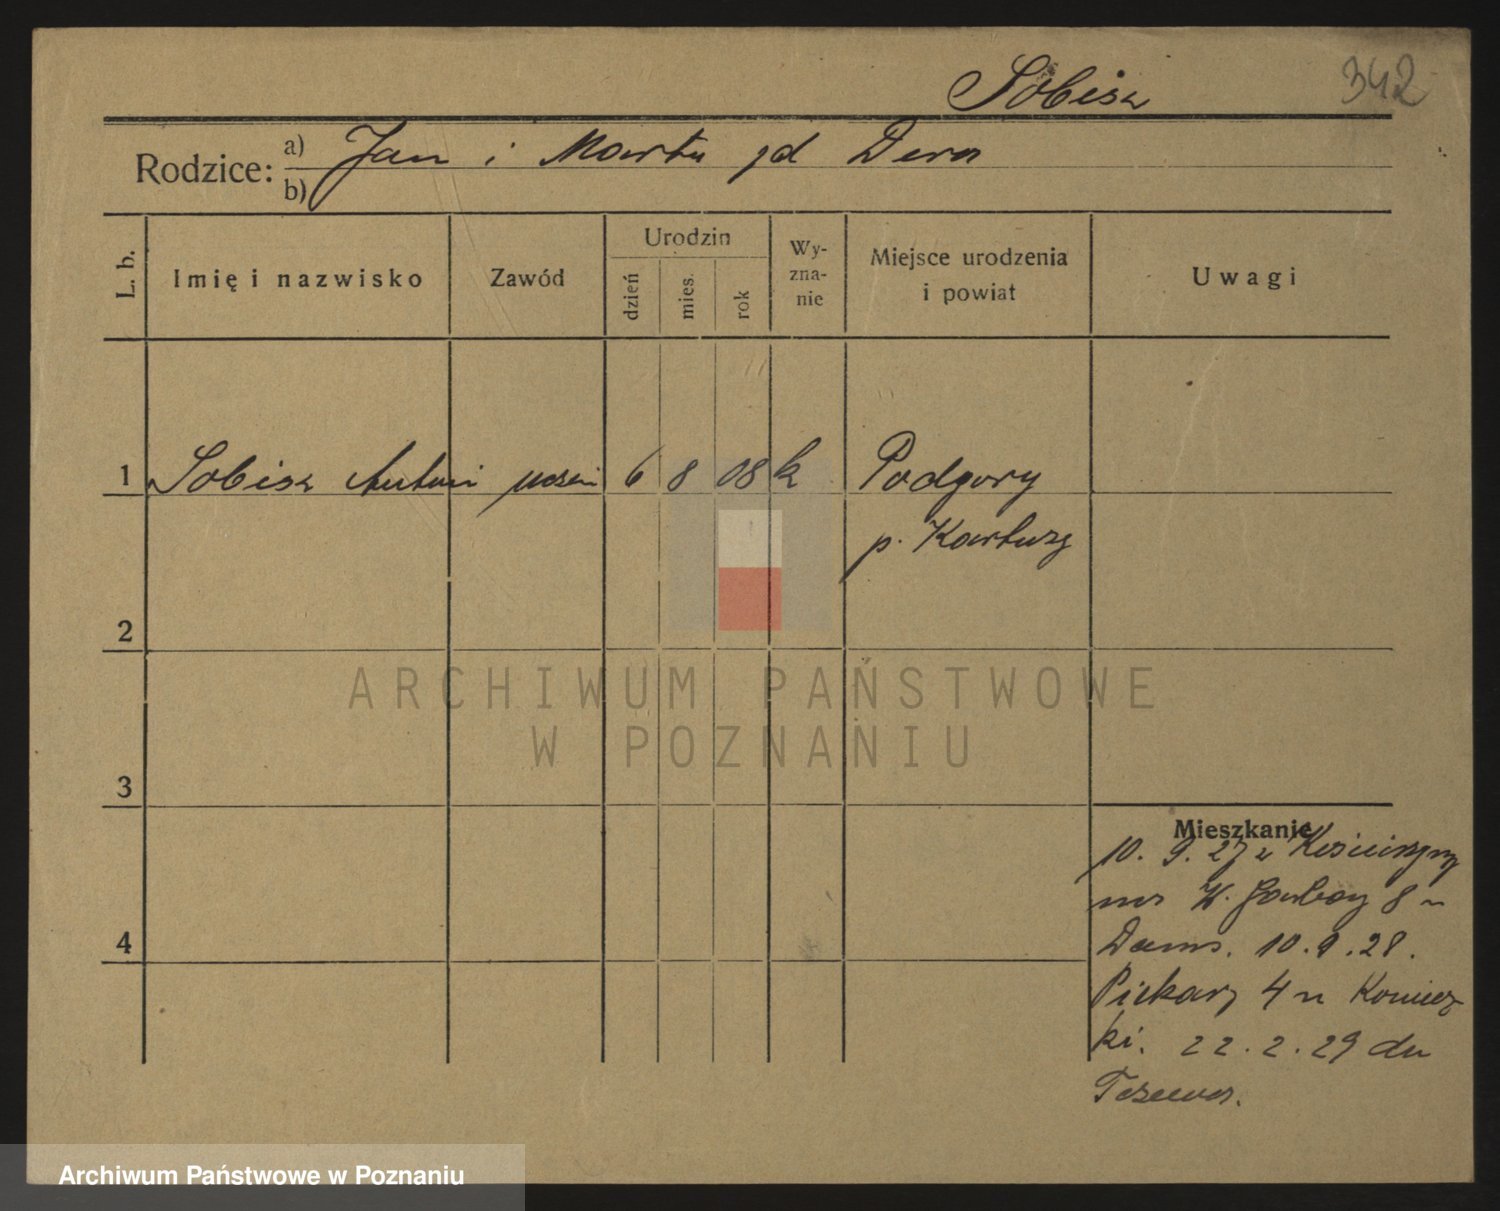 Sobisz 342
Rodzice: a) Jan i Marta zd Dera
b)
L. b. Imię i nazwisko Zawód Urodzin dzień mies. rok Wy-zna-nie Miejsce urodzenia i powiat Uwagi
1 Sobisz Antoni uczeń 6 8 08 k Podgory
p. Kartuzy
2
ARCHIWUM PAŃSTWOWE
W POZNANIU
3
Mieszkanie
10. 9. 27 z Kościerzyny
na W. Garbary 8 u
Dams. 10.9.28.
Piekary 4 u Koniecz
ki. 22.2.29 do
Tczewa.
4
Archiwum Państwowe w Poznaniu